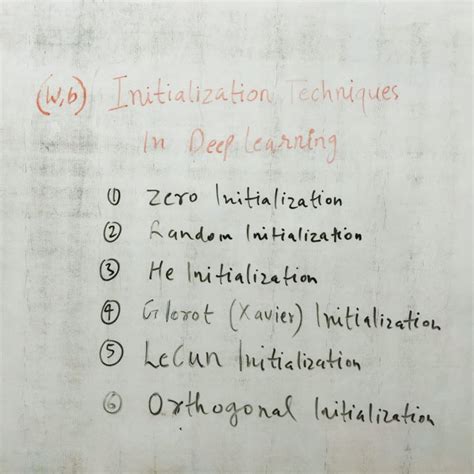 (W,b) Initialization Techniques
In Deep Learning
① Zero Initialization
② Random Initialization
③ He Initialization
④ Glorot (Xavier) Initialization
⑤ LeCun Initialization
⑥ Orthogonal Initialization